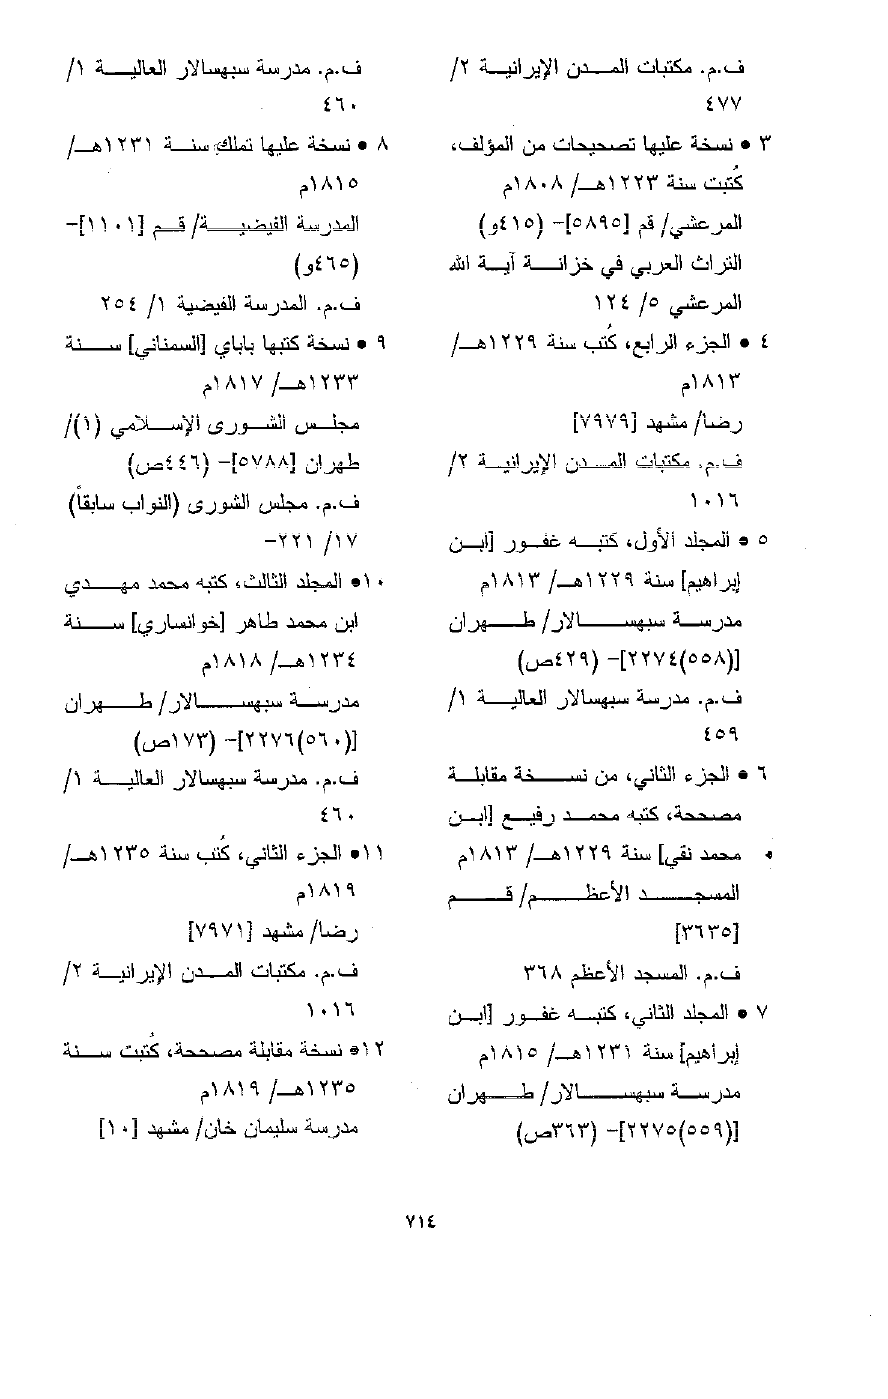 ف.م. مكتبات المدن الإيرانية ٢/
٤٧٧
٣ • نسخة عليها تصحيحات من المؤلف،
كُتبت سنة ١٢٢٣هـ/ ١٨٠٨م
المرعشي/ قم [٥٨٩٥]- (٤١٥و)
التراث العربي في خزانة آية الله
المرعشي ٥/ ١٢٤
٤ • الجزء الرابع، كُتب سنة ١٢٢٩هـ/
١٨١٣م
رضا/ مشهد [٧٩٧٩]
ف.م. مكتبات المدن الإيرانية ٢/
١٠١٦
٥ • المجلد الأول، كتبه غفور [ابن
إبراهيم] سنة ١٢٢٩هـ/ ١٨١٣م
مدرسة سبهسالار/ طهران
[(٥٥٨)٢٢٧٤]- (٤٢٩ص)
ف.م. مدرسة سبهسالار العالية ١/
٤٥٩
٦ • الجزء الثاني، من نسخة مقابلة
مصححة، كتبه محمد رفيع [ابن
محمد نقي] سنة ١٢٢٩هـ/ ١٨١٣م
المسجد الأعظم/ قم
[٣٦٣٥]
ف.م. المسجد الأعظم ٣٦٨
٧ • المجلد الثاني، كتبه غفور [ابن
إبراهيم] سنة ١٢٣١هـ/ ١٨١٥م
مدرسة سبهسالار/ طهران
[(٥٥٩)٢٢٧٥]- (٣٦٣ص)
ف.م. مدرسة سبهسالار العالية ١/
٤٦٠
٨ • نسخة عليها تملك سنة ١٢٣١هـ/
١٨١٥م
المدرسة الفيضية/ قم [١١٠١]-
(٤٦٥و)
ف.م. المدرسة الفيضية ١/ ٢٥٤
٩ • نسخة كتبها باباي [السمناني] سنة
١٢٣٣هـ/ ١٨١٧م
مجلس الشورى الإسلامي (١)/
طهران [٥٧٨٨]- (٤٤٦ص)
ف.م. مجلس الشورى (النواب سابقاً)
١٧/ ٢٢١-
١٠• المجلد الثالث، كتبه محمد مهدي
ابن محمد طاهر [خوانساري] سنة
١٢٣٤هـ/ ١٨١٨م
مدرسة سبهسالار/ طهران
[(٥٦٠)٢٢٧٦]- (١٧٣ص)
ف.م. مدرسة سبهسالار العالية ١/
٤٦٠
١١• الجزء الثاني، كُتب سنة ١٢٣٥هـ/
١٨١٩م
رضا/ مشهد [٧٩٧١]
ف.م. مكتبات المدن الإيرانية ٢/
١٠١٦
١٢• نسخة مقابلة مصححة، كُتبت سنة
١٢٣٥هـ/ ١٨١٩م
مدرسة سليمان خان/ مشهد [١٠]
٧١٤